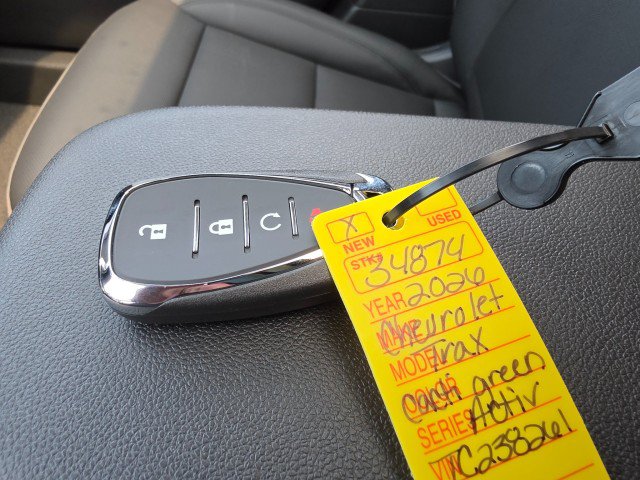 X
NEW USED
STK# 34874
YEAR 2026
MAKE Chevrolet
MODEL Trax
COLOR cacti green
SERIES Activ
VIN C238261